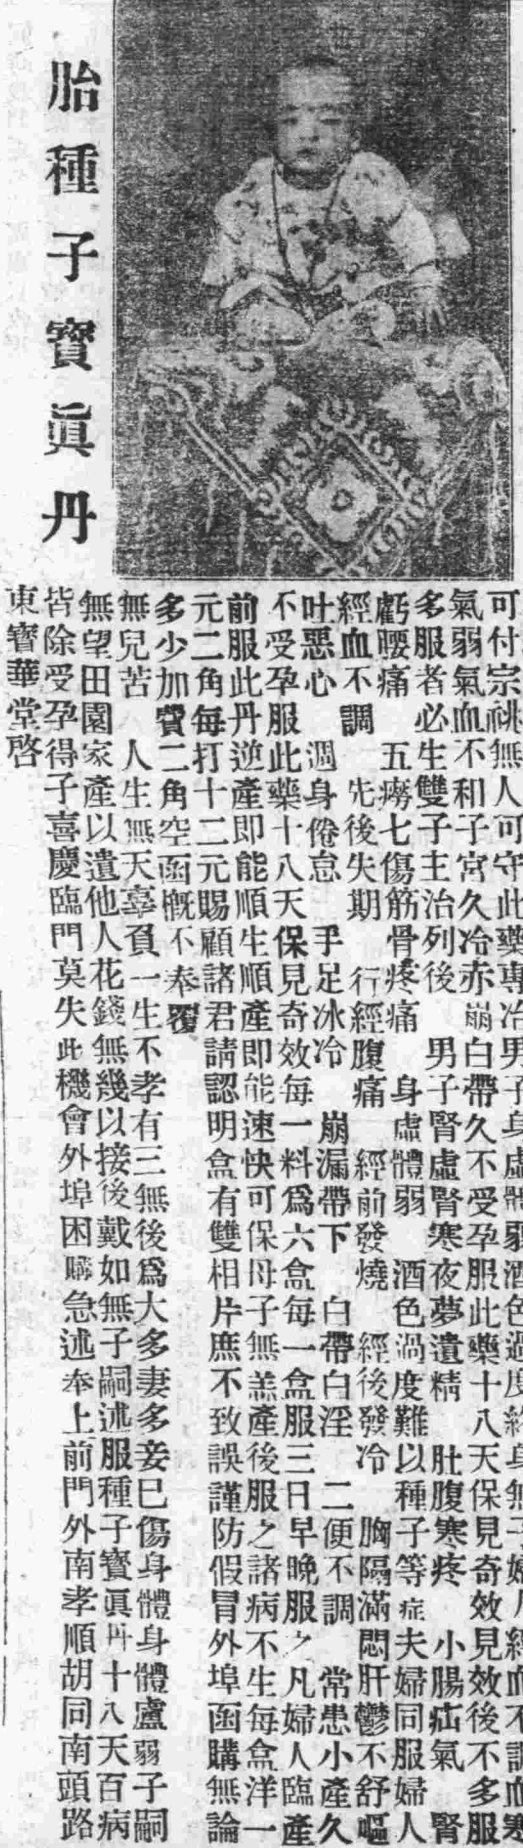 胎種子寶眞丹
可付宗祧無人可守此藥專治男子身虛體弱酒色過度終身無子婦人經血不調血寒
氣弱氣血不和子宮久冷赤崩白帶久不受孕服此藥十八天保見奇效見效後不多服
多服者必生雙子主治列後　男子腎虛腎寒夜夢遺精　肚腹寒疼　小腸疝氣　腎
虧腰痛　五癆七傷筋骨疼痛　身虛體弱　酒色過度難以種子等症夫婦同服婦人
經血不調　先後失期　行經腹痛　經前發燒　經後發冷　胸隔滿悶肝鬱不舒嘔
吐惡心　週身倦怠　手足冰冷　崩漏帶下　白帶白淫　二便不調　常患小產久
不受孕服此藥十八天保見奇效每一料爲六盒每一盒服三日早晚服之凡婦人臨產
前服此丹逆產即能順生順產即能速快可保母子無恙產後服之諸病不生每盒洋一
元二角每打十二元賜顧諸君請認明盒有雙相片庶不致誤謹防假冒外埠函購無論
多少加費二角空函概不奉覆
無兒苦　人生無天辜負一生不孝有三無後爲大多妻多妾已傷身體身體盧弱子嗣
無望田園家產以遺他人花錢無幾以接後戴如無子嗣述服種子寶眞丹十八天百病
皆除受孕得子喜慶臨門莫失此機會外埠困購急述奉上前門外南孝順胡同南頭路
東寶華堂啓